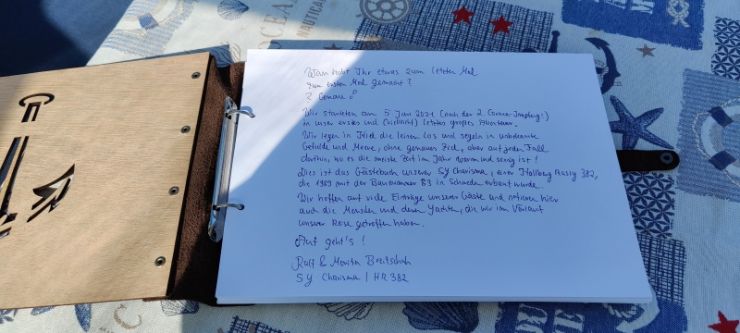 OCEAN
NAUTICAL
Wann habt Ihr etwas zum letzten Mal
zum ersten Mal gemacht?
? Genau!
Wir starteten am 5. Juni 2021 (nach der 2. Corona-Impfung!)
in unser erstes und (vielleicht) letztes großes Abenteuer.
Wir legen in Kiel die Leinen los und segeln in unbekannte
Gefilde und Meere, ohne genaues Ziel, aber auf jeden Fall
dorthin, wo es die meiste Zeit im Jahr warm und sonnig ist!
Dies ist das Gästebuch unserer SY Charisma, einer Hallberg Rassy 382,
die 1989 mit der Baunummer 83 in Schweden erbaut wurde.
Wir hoffen auf viele Einträge unserer Gäste und notieren hier
auch die Menschen und deren Yachten, die wir im Verlauf
unserer Reise getroffen haben.
Auf geht's!
Ralf & Marita
SY Charisma | HR 382